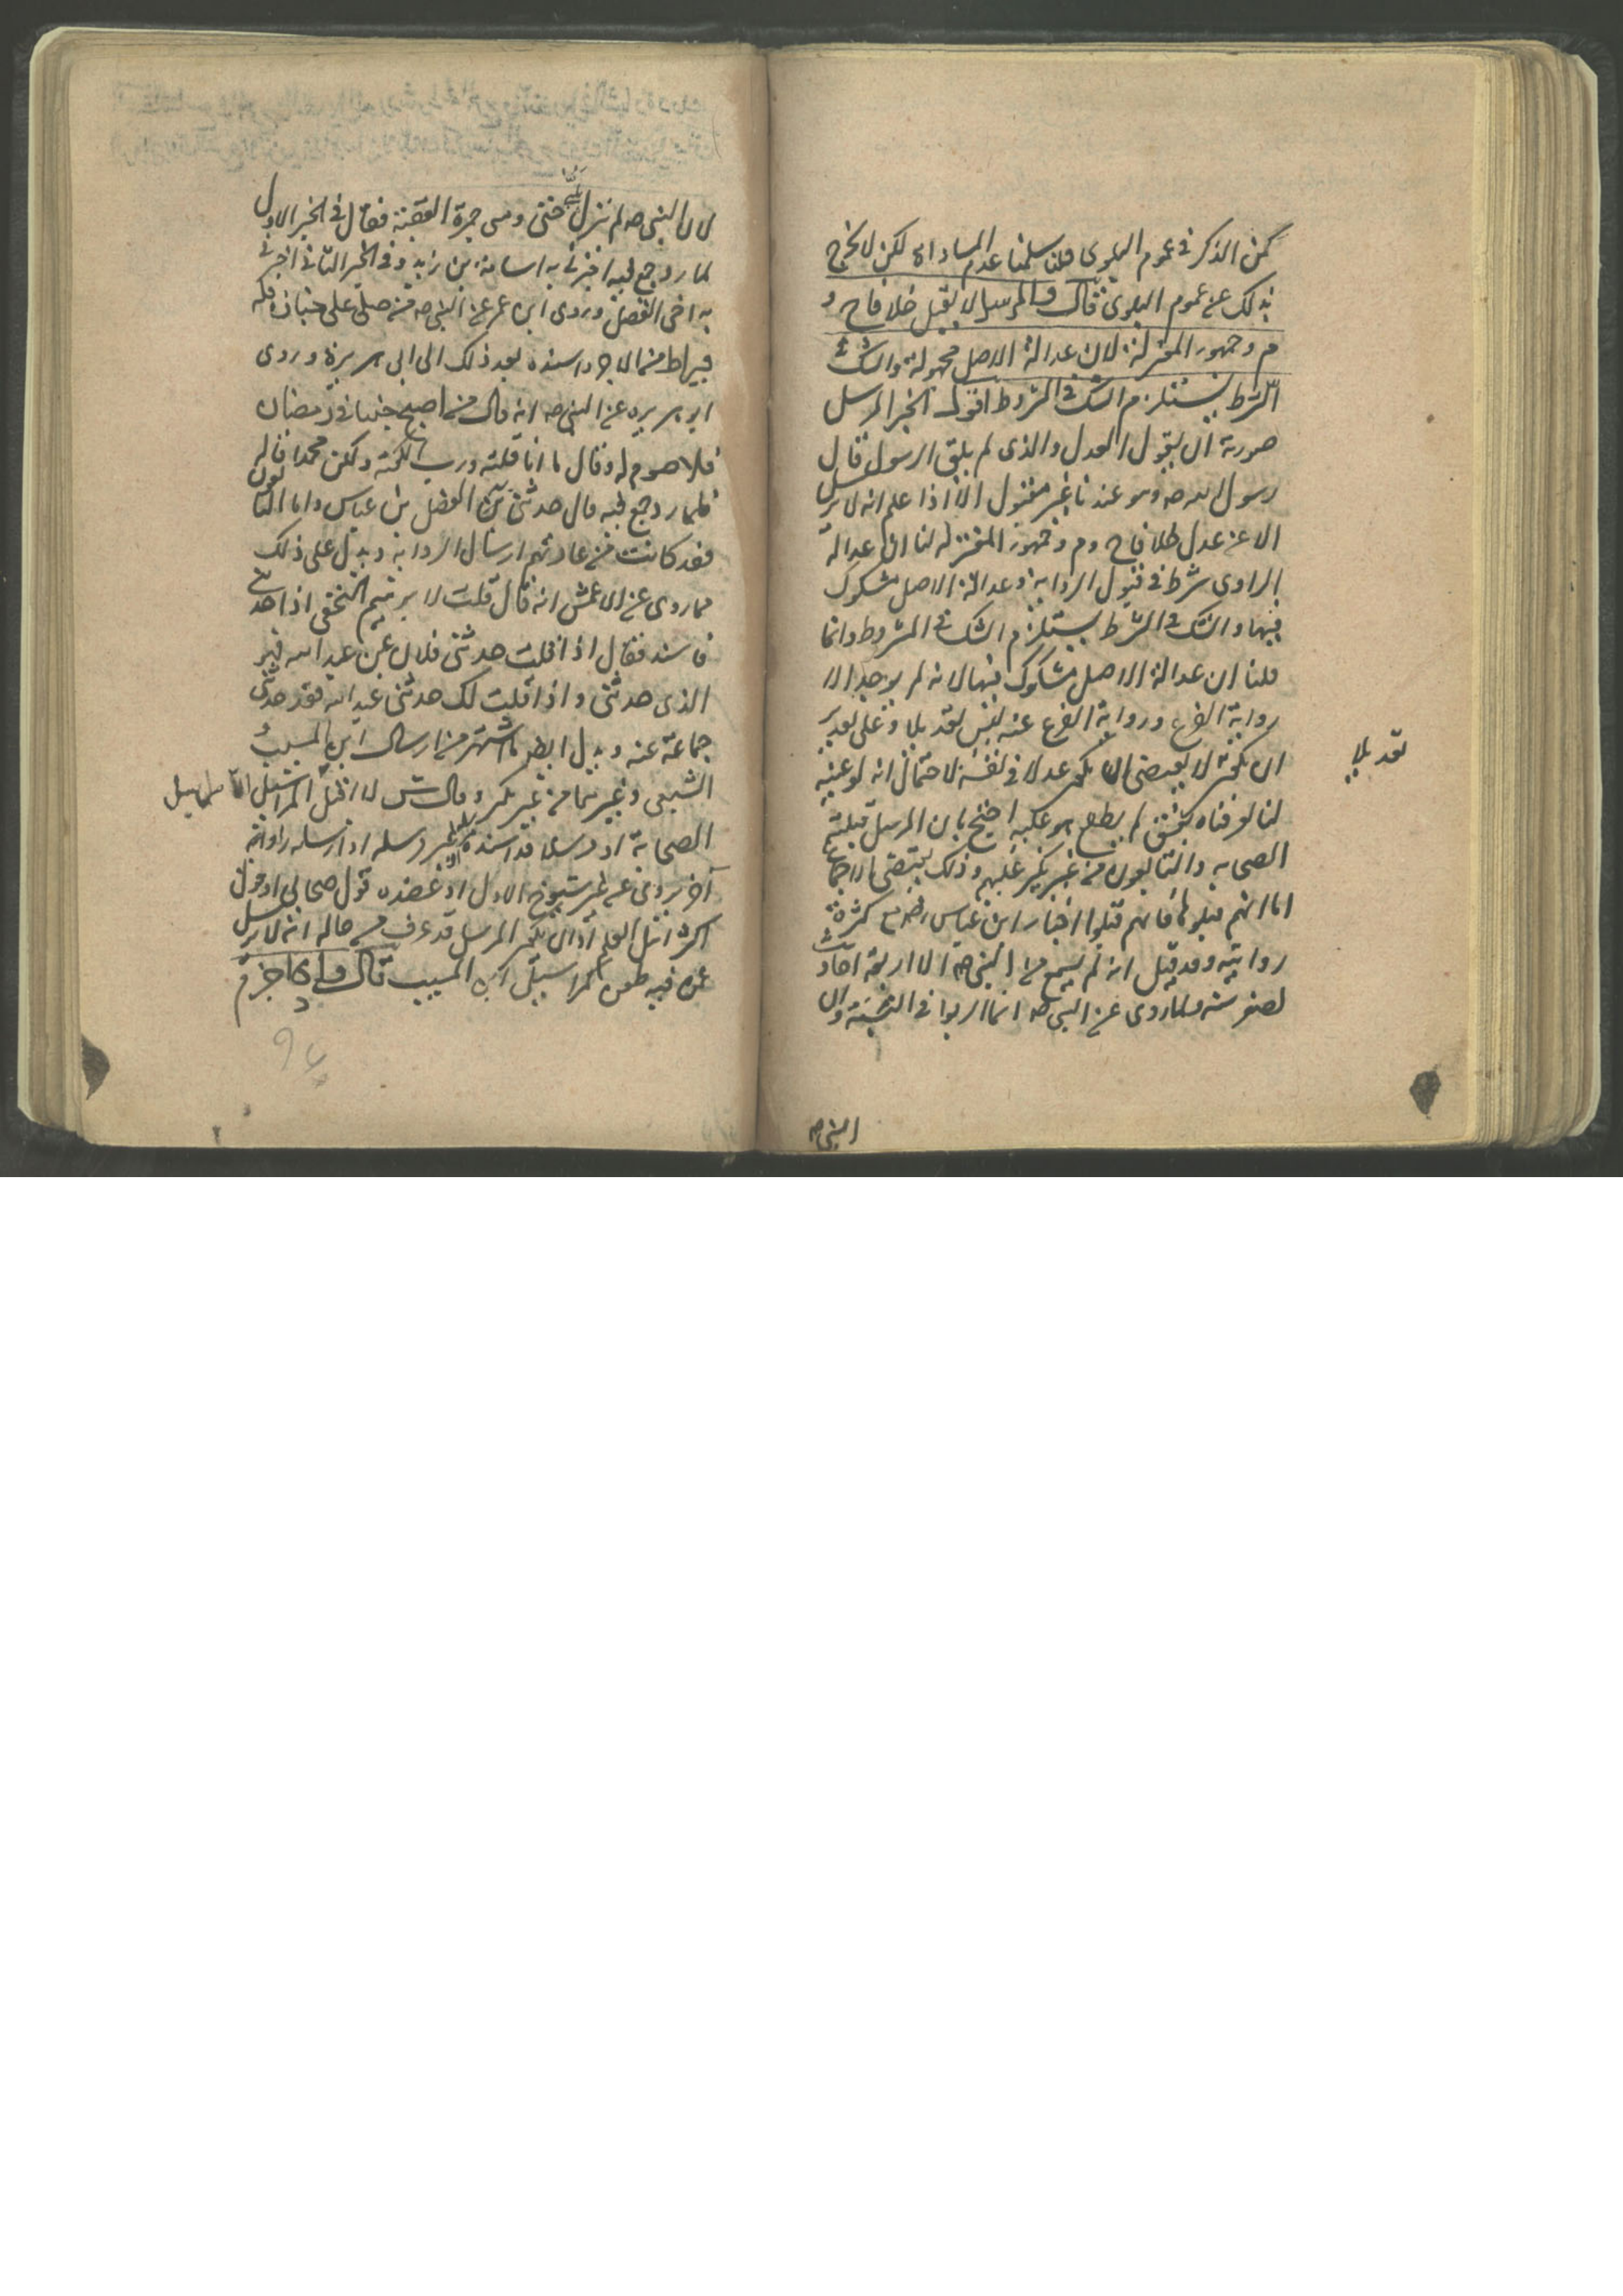 كمن الذكر في عموم البلوى قلنا سلمنا عدم المساواة لكن لا يخرج
بذلك عن عموم البلوى قال والمرسل لا يقبل خلافا ح و
م وجمهور المعتزلة لان عدالة الاصل مجهولة والشك في
الشرط يستلزم الشك في المشروط اقول الخبر المرسل
صورته ان يقول العدل والذي لم يلق الرسول قال
رسول الله صه وهو عندنا غير مقبول الا اذا علم انه لا يرسل
الا عن عدل خلافا ح وم وجمهور المعتزلة لنا ان عدالة
الراوي شرط في قبول الرواية وعدالة الاصل مشكوك
فيها والشك في الشرط يستلزم الشك في المشروط وانما
قلنا ان عدالة الاصل مشكوك فيها لانه لم يوجد الا
رواية الفرع ورواية الفرع عنه ليس تعديلا وعلى تقدير
تعديلا
ان يكون لا يقتضي ان يكون عدلا في نفسه لاحتمال انه لو عينه
لنا لعرفناه بفسق لم يطلع هو عليه احتج بان المرسل قبلته
الصحابه والتابعون من غير نكير عليهم وذلك يقتضي الاجماع
اما انهم قبلوها فانهم قبلوا اخبار ابن عباس رضه مع كثرة
روايته وقد قيل انه لم يسمع من النبي صه الا اربعة احاديث
لصغر سنه ولما روى عن النبي صه انما الربوا في النسيئة وان
النبي صه
لان النبي صه لم يزل يلبي حتى رمى جمرة العقبة فقال في الخبر الاول
لما روجع فيه اخبرني به اسامة بن زيد وفي الخبر الثاني اخبرني
به اخي الفضل وروى ابن عمر عن النبي صه من صلى على جنازة فله
قيراط من الاجر واسنده بعد ذلك الى ابي هريرة وروى
ابو هريره عن النبي صه انه قال من اصبح جنبا في رمضان
فلا صوم له وقال ما انا قلته ورب الكعبة ولكن محمدا قاله
فلما روجع فيه قال حدثني به الفضل بن عباس واما التابعون
فقد كانت من عادتهم ارسال الرواية ويدل على ذلك
ما روى عن الاعمش انه قال قلت لابرهيم النخعي اذا حدثتني
فاسند فقال اذا قلت حدثني فلان عن عبد الله فهو
الذي حدثني واذا قلت لك حدثني عبد الله فقد حدثني
جماعة عنه ويدل ايضا ما اشتهر من ارسال ابن المسيب و
الشعبي وغيرهما من غير نكير وقال ش لا اقبل المراسيل الا مراسيل
الصحابة او مرسلا قد اسنده غير مرسله او ارسله راو
آخر يروي عن غير شيوخ الاول او عضده قول صحابي او قول
اكثر اهل العلم او ان يكون المرسل قد عرف من حاله انه لا يرسل
عمن فيه طعن كمراسيل ابن المسيب قال واذا جزم